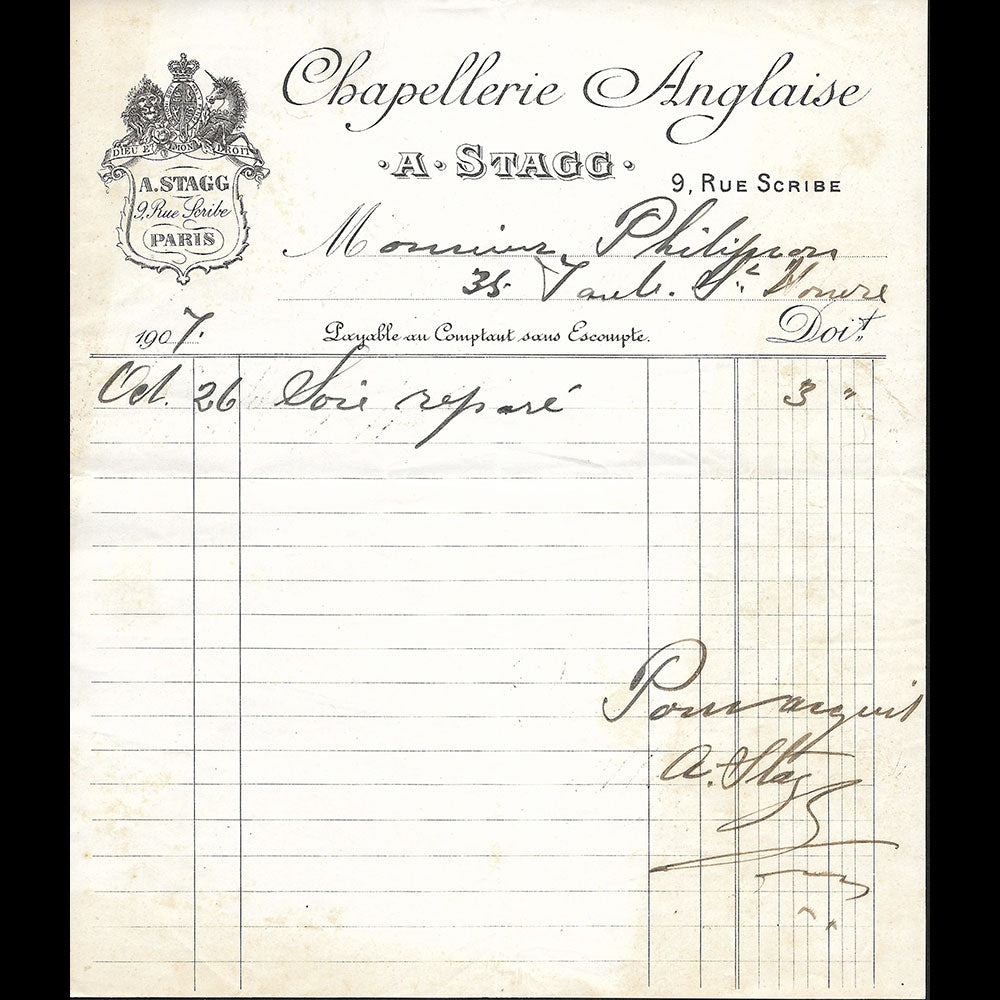 Chapellerie Anglaise
DIEU ET MON DROIT
A. STAGG
9, Rue Scribe
PARIS
· A · STAGG ·
9, RUE SCRIBE
Monsieur Philippon
35 Faub. St Honoré
1907. Payable au Comptant sans Escompte. Doit
Oct. 26 Soie reparé 3 "
Pour acquit
A. Stagg